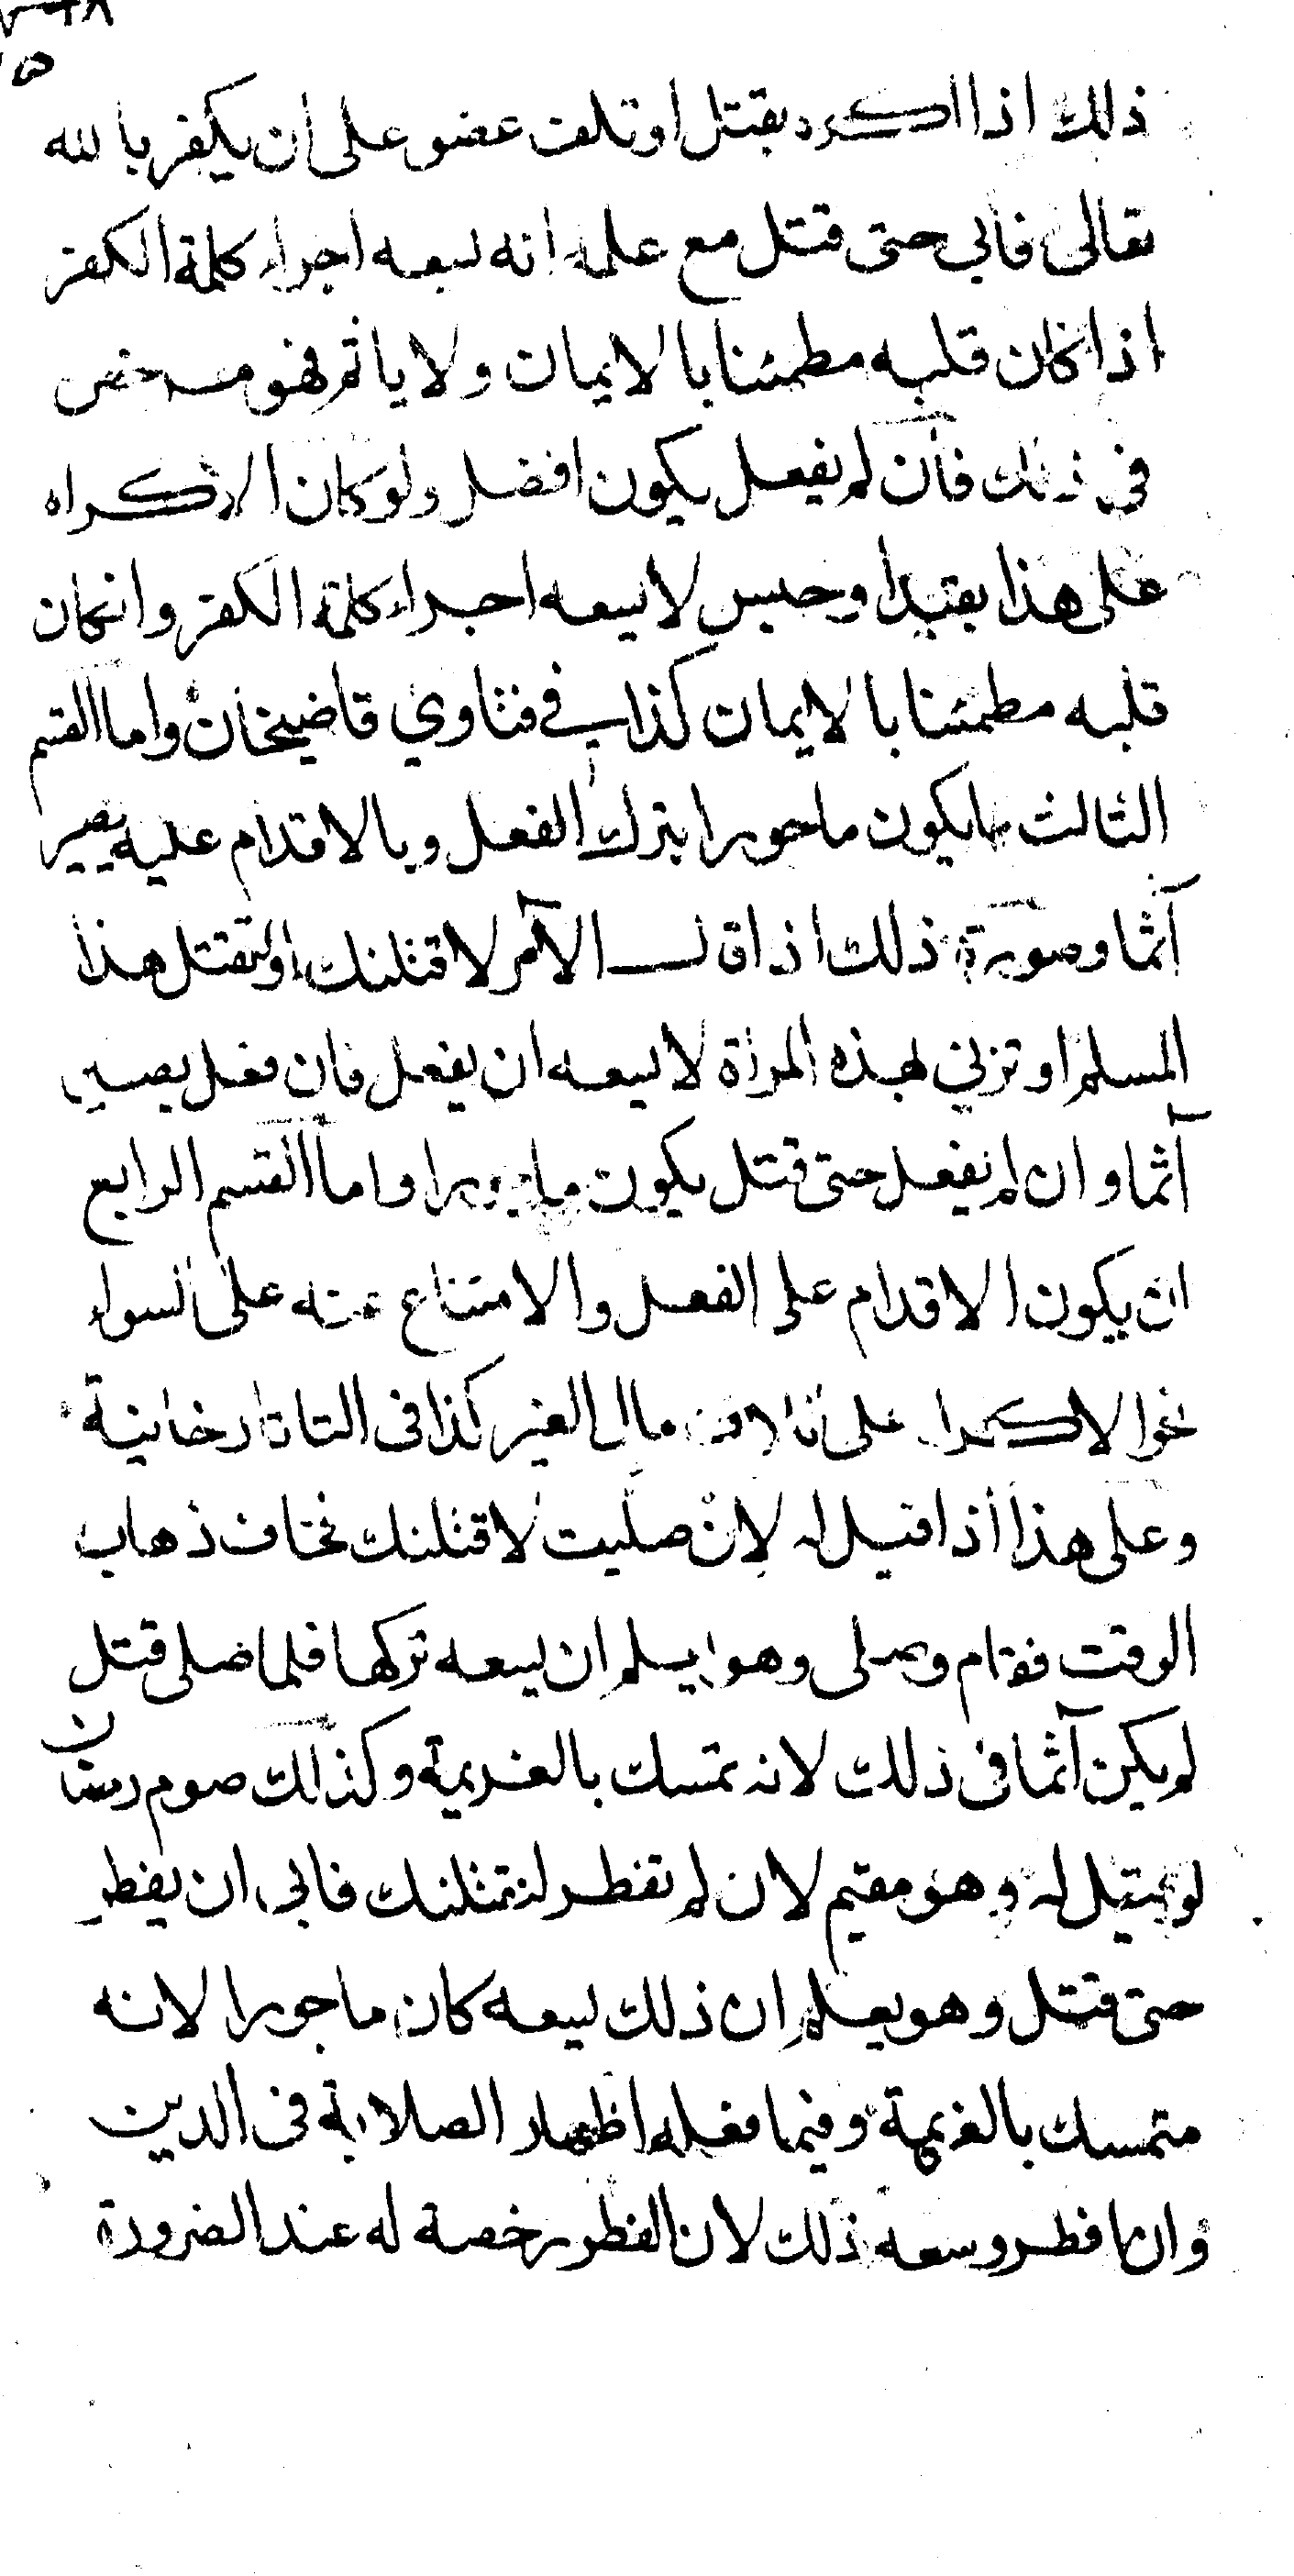 ذلك اذا اكره بقتل او تلف عضو على ان يكفر بالله
تعالى فابى حتى قتل مع علمه انه يسعه اجراء كلمة الكفر
اذا كان قلبه مطمئنا بالايمان ولا ياثم فهو مرخص
فى ذلك فان لم يفعل يكون افضل ولو كان الاكراه
على هذا بقيد او حبس لا يسعه اجراء كلمة الكفر وان كان
قلبه مطمئنا بالايمان كذا في فتاوي قاضيخان واما القسم
الثالث ما يكون ماجورا بترك الفعل وبالاقدام عليه يصير
آثما وصورة ذلك اذا قال الآمر لاقتلنك او لتقتل هذا
المسلم او تزنى بهذه المراة لا يسعه ان يفعل فان فعل يصير
آثما وان لم يفعل حتى قتل يكون ماجورا واما القسم الرابع
ان يكون الاقدام على الفعل والامتناع عنه على السواء
نحو الاكراه على اتلاف مال الغير كذا فى التاتارخانية
وعلى هذا اذا قيل له لان صليت لاقتلنك فخاف ذهاب
الوقت فقام وصلى وهو يعلم ان يسعه تركها فلما صلى قتل
لم يكن آثما فى ذلك لانه تمسك بالعزيمة وكذلك صوم رمضان
لو قيل له وهو مقيم لان لم تفطر لنقتلنك فابى ان يفطر
حتى قتل وهو يعلم ان ذلك يسعه كان ماجورا لانه
متمسك بالعزيمة وفيما فعله اظهار الصلابة فى الدين
وان افطر وسعه ذلك لان الفطر رخصة له عند الضرورة